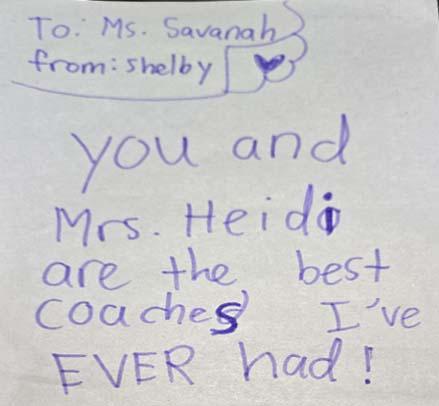 To: Ms. Savanah
from: shelby
you and
Mrs. Heidi
are the best
coaches I've
EVER had!